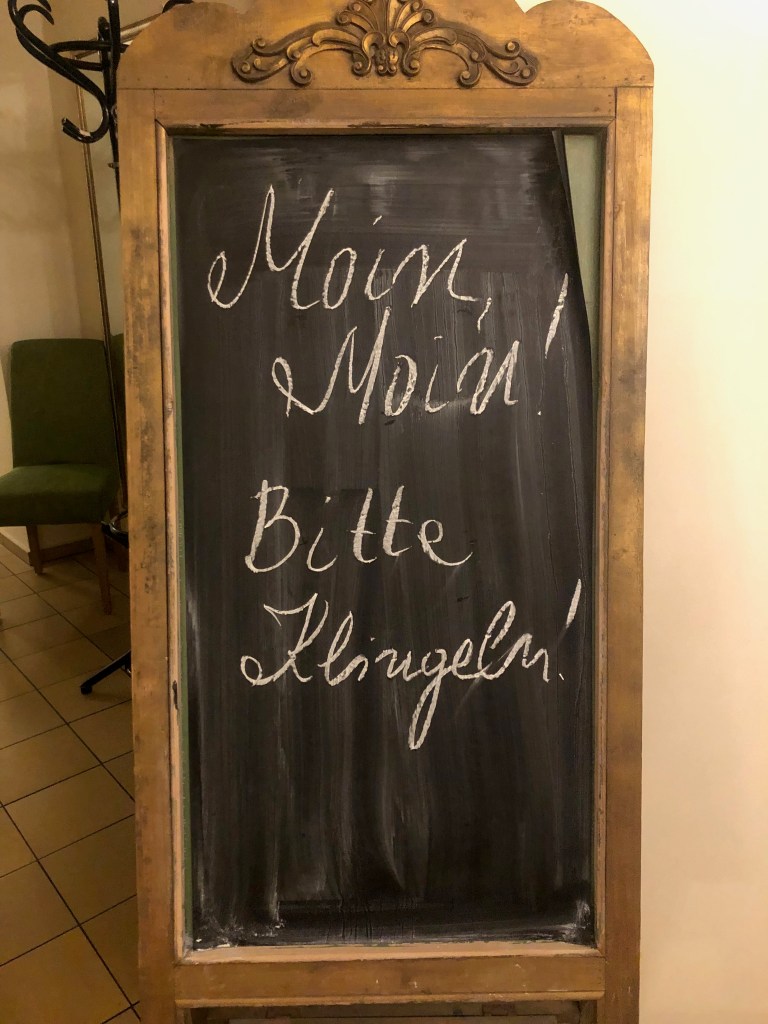 Moin,
Moin!
Bitte
Klingeln!